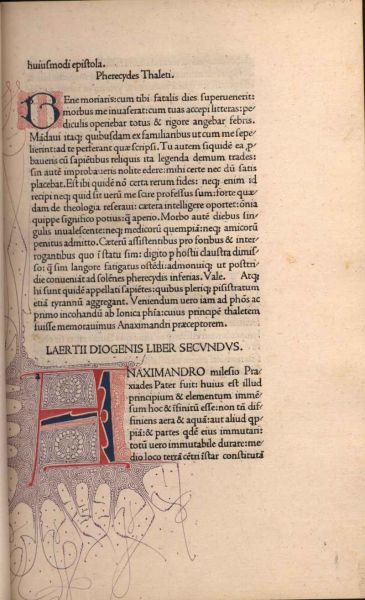 huiusmodi epistola.
Pherecydes Thaleti.
BEne moriaris: cum tibi fatalis dies superuenerit:
morbus me inuaserat: cum tuas accepi litteras: pe/
diculis operiebar totus & rigore angebar febris.
Mādaui itaq; quibusdam ex familiaribus ut cum me sepe
lierint: ad te perferant quæ scripsi. Tu autem siquidē ea ,p
baueris cū sapiētibus reliquis ita legenda demum trades:
sin autē improbaueris nolite edere: mihi certe nec dū satis
placebat. Est ibi quidē nō certa rerum fides: neq; enim id
recipi neq; quid sit uerū me scire professus sum: forte quæ
dam de theologia reseraui: cætera intelligere oportet: oniā
quippe significo potius: q̄ aperio. Morbo autē diebus sin/
gulis inualescente: neq; medicorū quempiā: neq; amicorū
penitus admitto. Cæterū assistentibus pro foribus & inter/
rogantibus quo ī statu sim: digito p hostii claustra dimis/
so: q̄ sim langore fatigatus ostēdi: admonuiq; ut postri/
die conueniāt ad solēnes pherecydis inferias. Vale. Atq;
hi sunt quidē appellati sapiētes: quibus pleriq; pisistratum
etiā tyrannū aggregant. Veniendum uero iam ad phōs ac
primo incohandū ab Ionica phīa: cuius principē thaletem
fuisse memorauimus Anaximandri præceptorem.
LAERTII DIOGENIS LIBER SECVNDVS.
ANAXIMANDRO milesio Pra
xiades Pater fuit: huius est illud
principium & elementum immē
sum hoc & īfinitū esse: non tn̄ dif/
finiens aera & aquā: aut aliud qp/
piā: & partes qdē eius immutari:
totū uero immutabile durare: me/
dio loco terrā cētri īstar constitutā